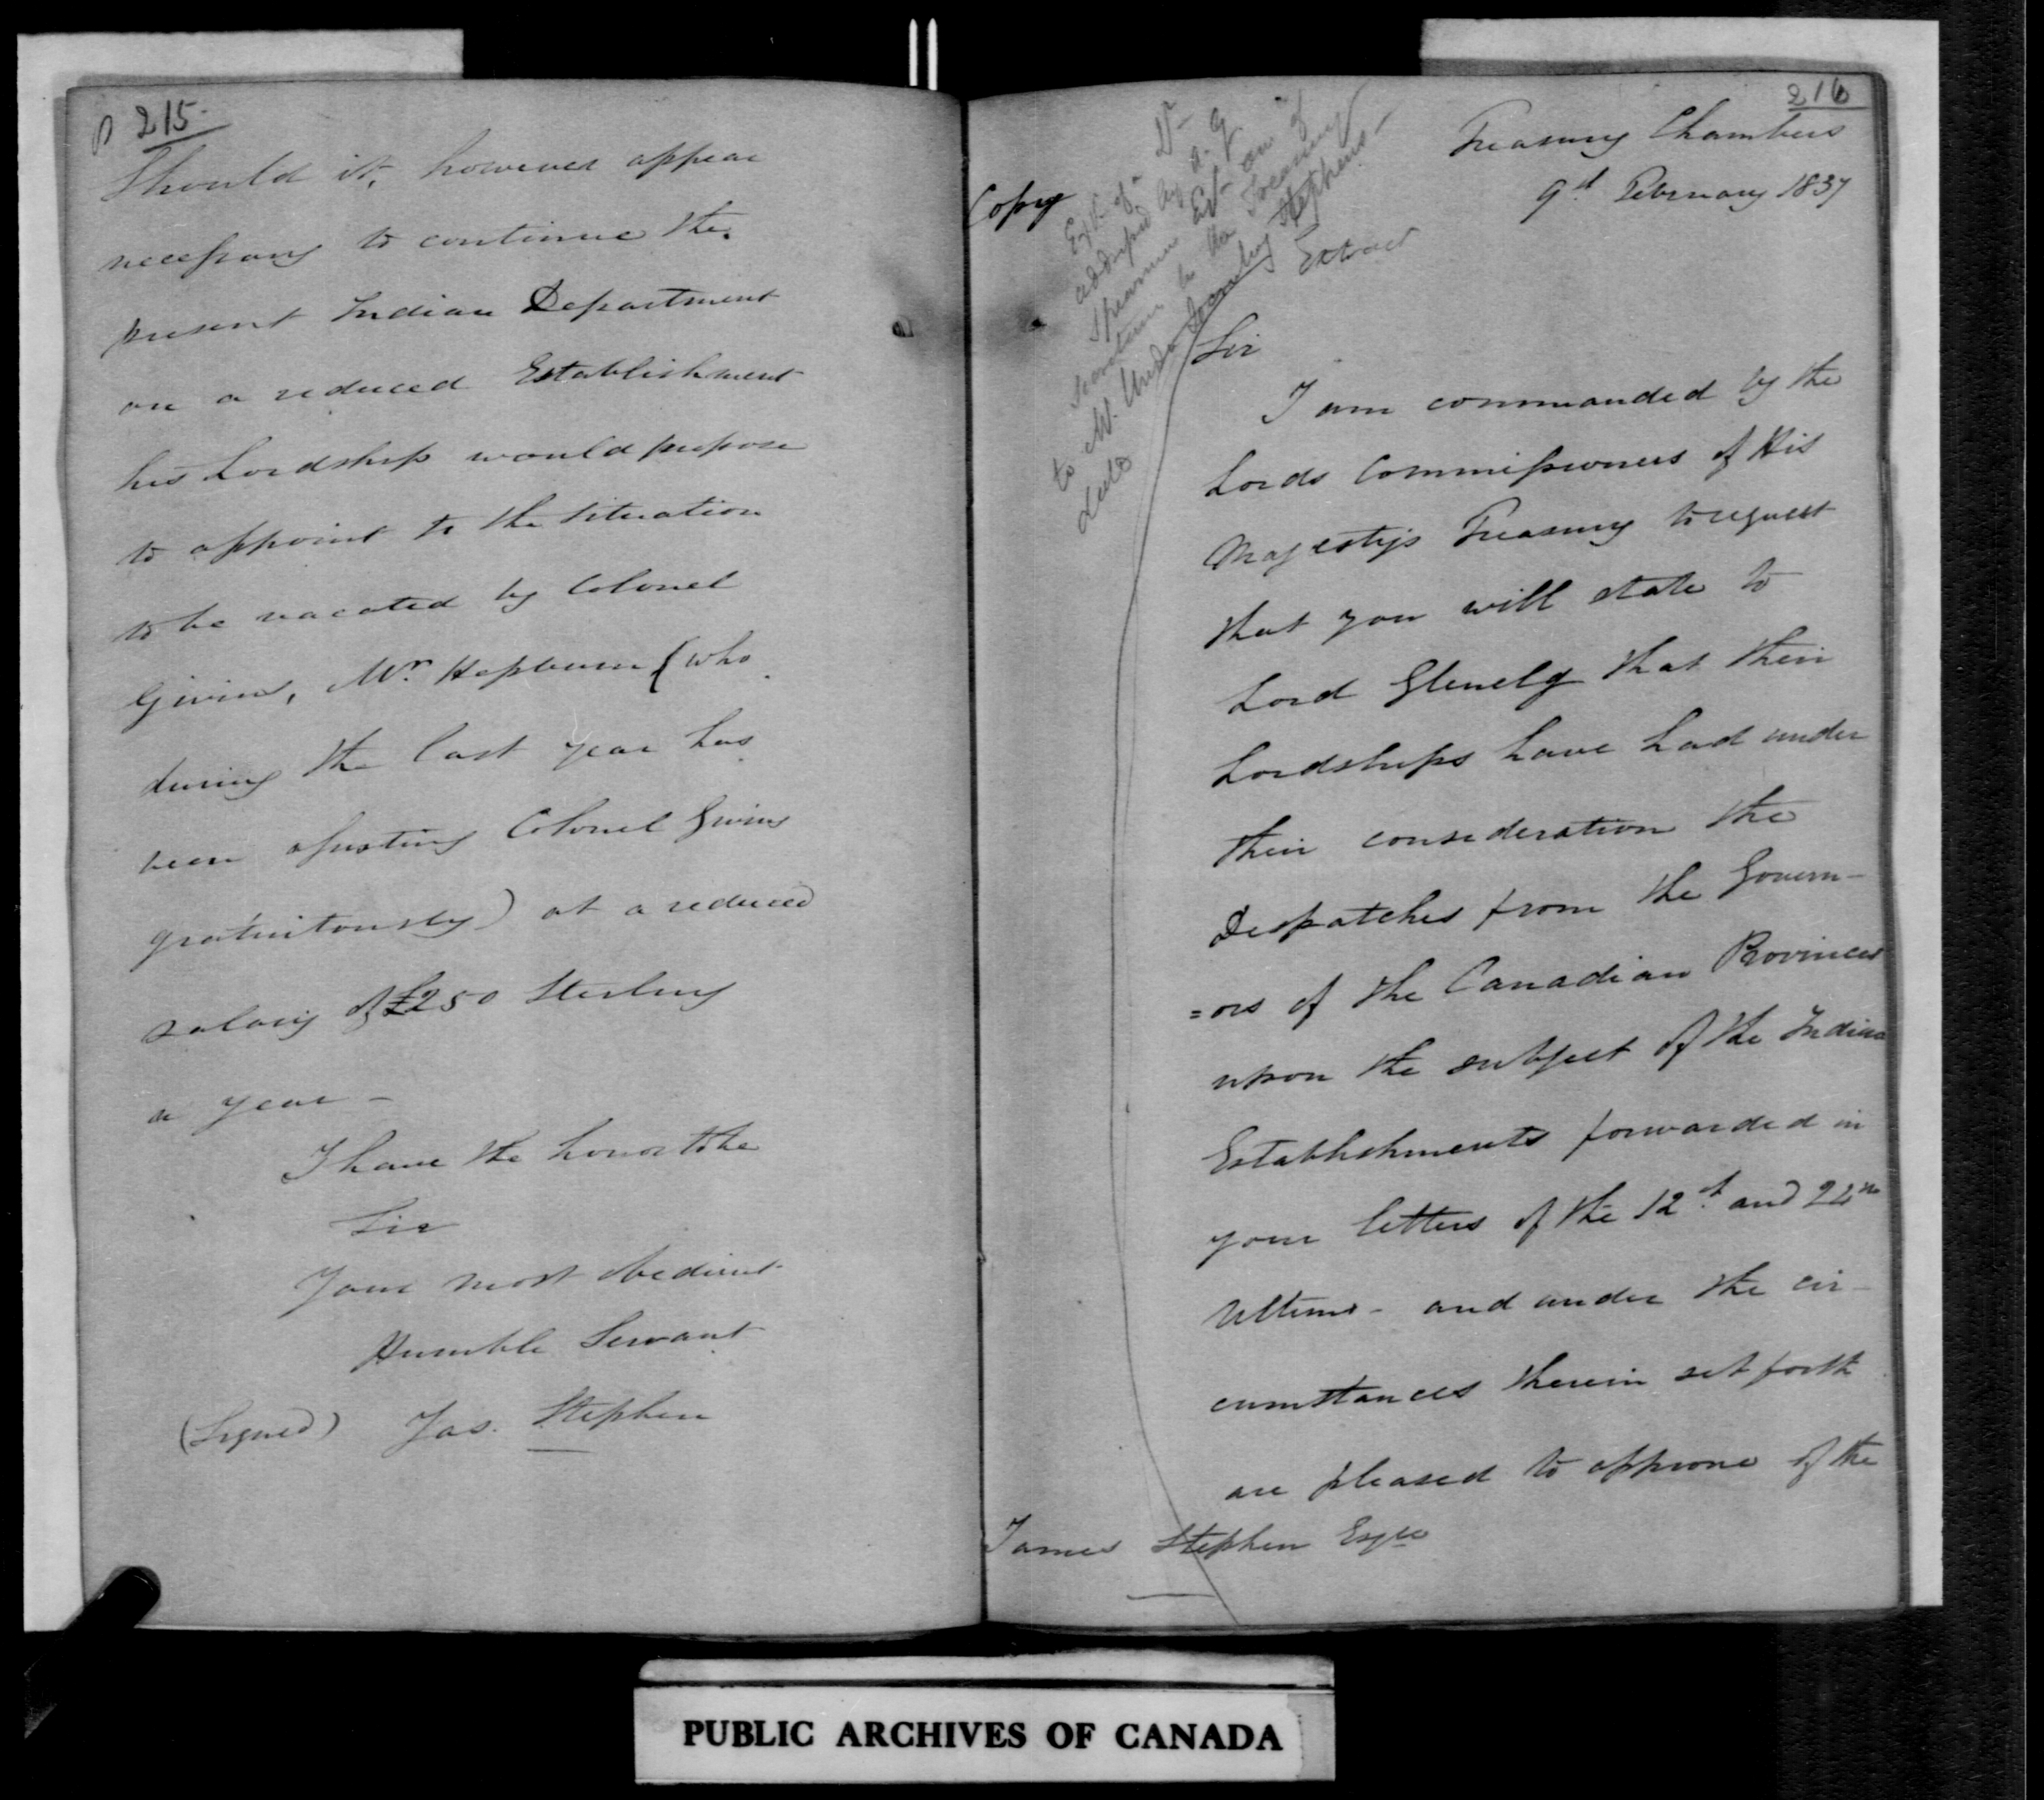 215.
Should it, however appear
necessary to continue the
present Indian Department
on a reduced Establishment
his Lordship would propose
to appoint to the situation
to be vacated by Colonel
Givins, Mr. Hepburn (who
during the last year has
been assisting Colonel Givins
gratuitously) at a reduced
salary of £250 Sterling
a year -
I have the honor to be
Sir
Your most obedient
Humble Servant
(Signed) Jas. Stephen
216
Treasury Chambers
9th February 1837
Copy
Ext of a
addressed by A. Y
Spearman Esq. one of
to the Treasury
to Mr. Under Secretary Stephens -
Extract
Sir
I am commanded by the
Lords Commissioners of His
Majesty's Treasury to request
that you will state to
Lord Glenelg that their
Lordships have had under
their consideration the
Despatches from the Govern-
=ors of the Canadian Provinces
upon the subject of the Indian
Establishments forwarded in
your letters of the 12th and 22nd
Ultimo - and under the cir-
cumstances therein set forth
are pleased to approve of the
James Stephen Esqre
PUBLIC ARCHIVES OF CANADA